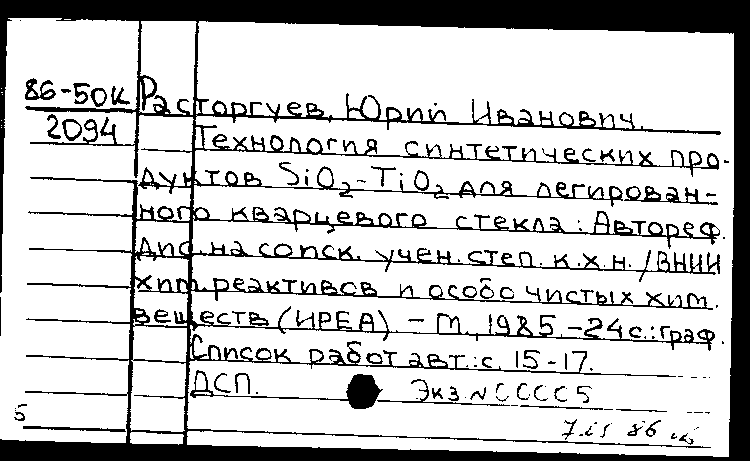 86-50К Расторгуев, Юрий Иванович.
2094 Технология синтетических про-
дуктов SiO2-TiO2 для легирован-
ного кварцевого стекла: Автореф.
дис. на соиск. учен. степ. к.х.н. / ВНИИ
хим. реактивов и особо чистых хим.
веществ (ИРЕА). - М., 1985. - 24 с.: граф.
Список работ авт.: с. 15-17.
ДСП. Экз N СССС5
5
86